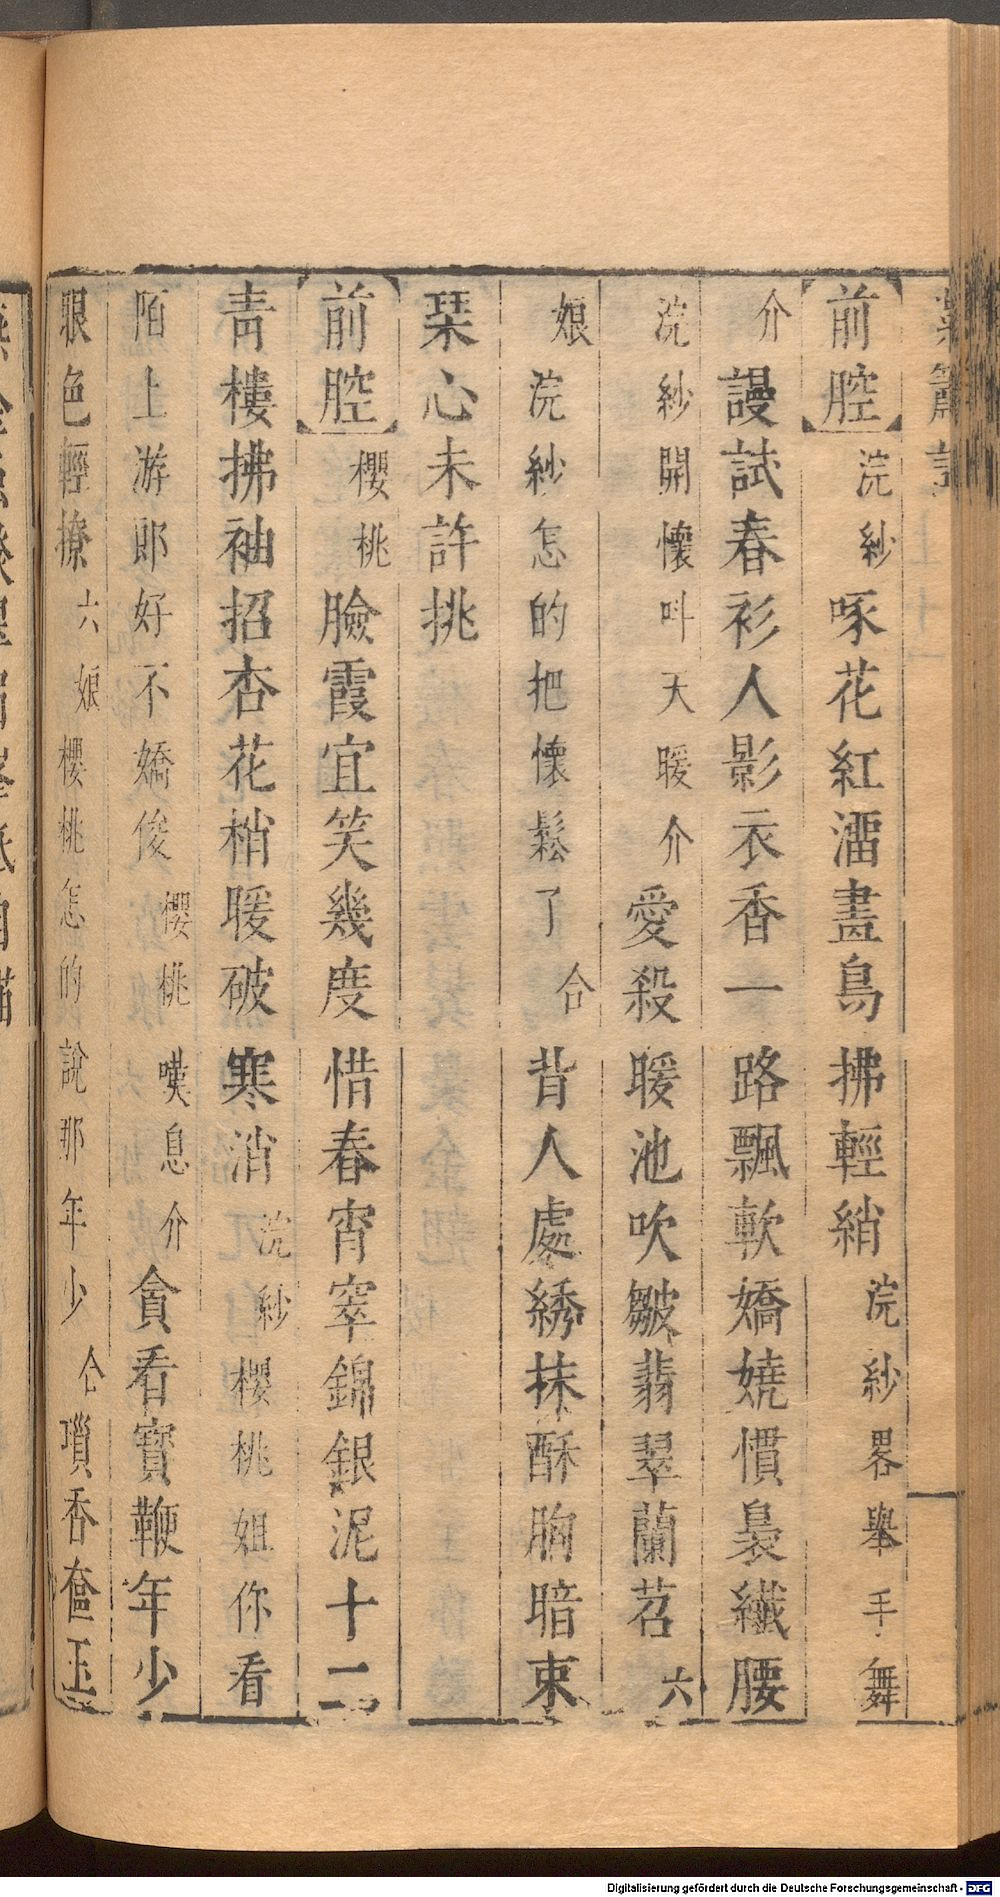 紫簫記
前腔 浣紗 啄花紅湮畫鳥拂輕綃 浣紗畧舉手舞
介 謾試春衫人影衣香一路飄軟嬌嬈慣裊纖腰
浣紗開懷叫天暖介 愛殺暖池吹皺翡翠蘭苕 六
娘 浣紗怎的把懷鬆了 合 昔人處綉抹酥胸暗束
琹心未許挑
前腔 櫻桃 臉霞宜笑幾度惜春宵窣錦銀泥十二
青樓拂袖招杏花梢暖破寒消 浣紗 櫻桃姐你看
陌上游郎好不嬌俊 櫻桃嘆息介 貪看寶鞭年少
眼色輕撩 六娘 櫻桃怎的說那年少 合 瑣香奩玉
Digitalisierung gefördert durch die Deutsche Forschungsgemeinschaft - DFG